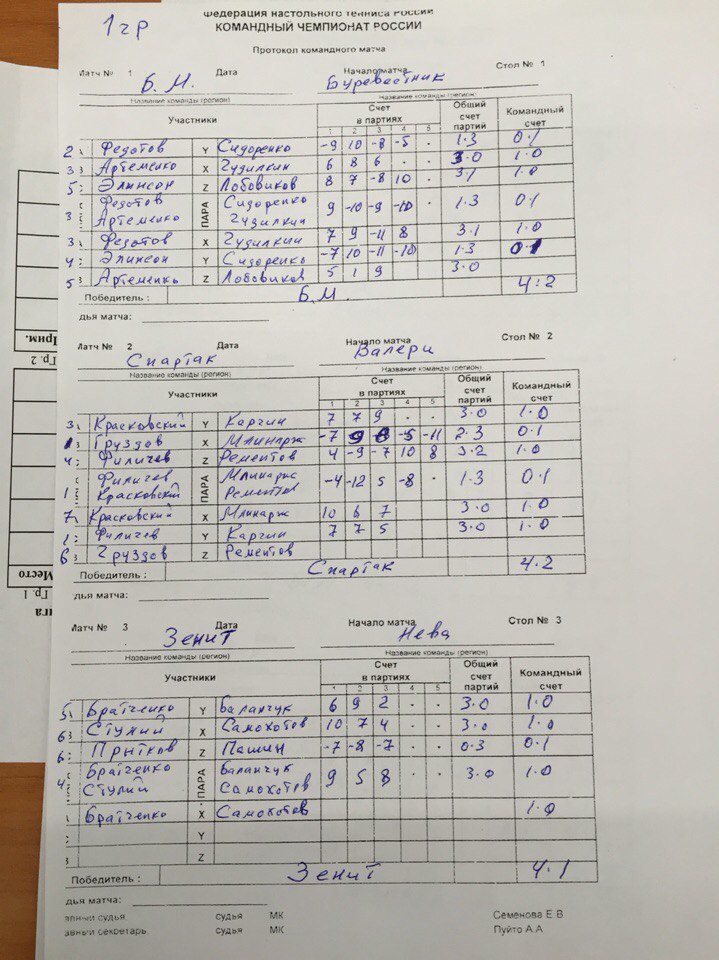 1 гр
Федерация настольного тенниса России
КОМАНДНЫЙ ЧЕМПИОНАТ РОССИИ
Протокол командного матча
Матч № 1 Дата Начало матча Стол № 1
Б.М. Буревестник
Название команды (регион) Название команды (регион)
Участники Счет в партиях Общий счет партий Командный счет
1 2 3 4 5
2 Федотов Y Сидоренко -9 10 -8 -5 . 1.3 0.1
3 Артеменко X Чудилкин 6 8 6 . . 3.0 1.0
5 Элинсон Z Лобовиков 8 7 -8 10 . 3.1 1.0
Федотов ПАРА Сидоренко 9 -10 -9 -10 . 1.3 0.1
3 Артеменко Чудилкин
3 Федотов X Чудилкин 7 9 -11 8 3.1 1.0
4 Элинсон Y Сидоренко -7 10 -11 -10 1.3 0.1
5 Артеменко Z Лобовиков 5 1 9 3.0
Победитель : Б.М. 4:2
дья матча:
Матч № 2 Дата Начало матча Стол № 2
Спартак Валери
Название команды (регион) Название команды (регион)
Участники Счет в партиях Общий счет партий Командный счет
1 2 3 4 5
3 Красковский Y Каргин 7 7 9 . . 3.0 1.0
1 Груздов X Млинарж -7 9 8 -5 -11 2.3 0.1
4 Филичев Z Рементов 4 -9 -7 10 8 3.2 1.0
Филичев ПАРА Млинарж -4 -12 5 -8 . 1.3 0.1
1 Красковский Рементов
7 Красковский X Млинарж 10 6 7 3.0 1.0
1 Филичев Y Каргин 7 7 5 3.0 1.0
6 Груздов Z Рементов
Победитель : Спартак 4.2
дья матча:
Матч № 3 Дата Начало матча Стол № 3
Зенит Нева
Название команды (регион) Название команды (регион)
Участники Счет в партиях Общий счет партий Командный счет
1 2 3 4 5
5 Братченко Y Баланчук 6 9 2 . . 3.0 1.0
6 Стулий X Самохотов 10 7 4 . . 3.0 1.0
6 Прытков Z Пашин -7 -8 -7 . . 0.3 0.1
Братченко ПАРА Баланчук 9 5 8 . . 3.0 1.0
4 Стулий Самохотов
Братченко X Самохотов 1.0
Y
Z
Победитель : Зенит 4.1
дья матча:
авный судья судья МК Семенова Е.В
авный секретарь. судья МК Пуйто А.А
Прим.
Гр. 2
Место
Гр. 1